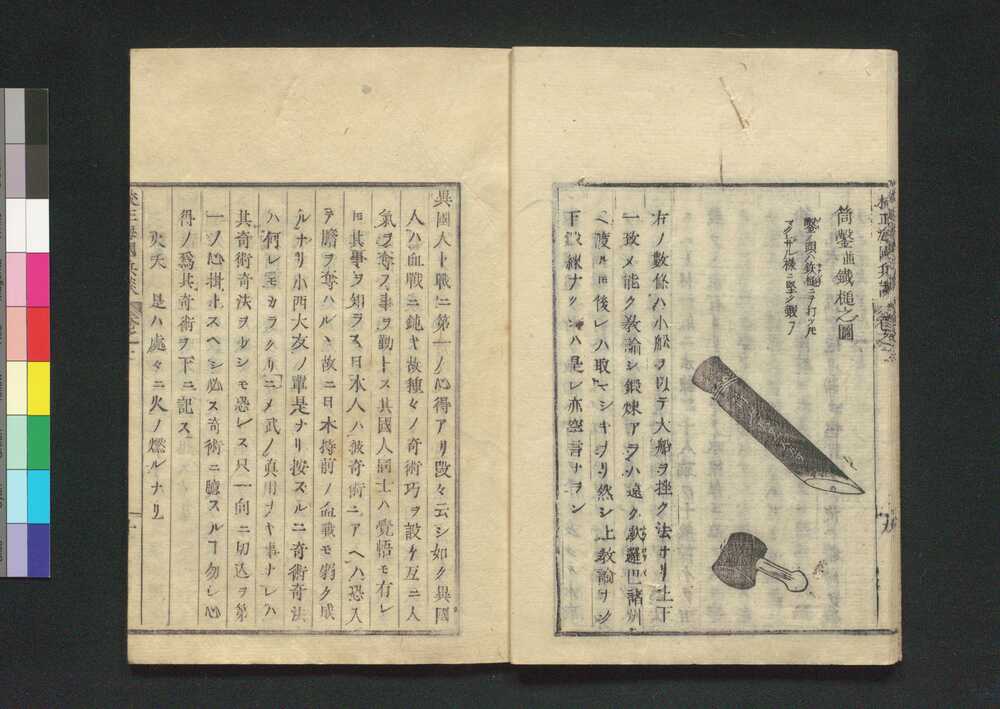 筒鑿并鐵槌之圖
鑿ノ頭ハ鉄槌ニテ打ツ
マクサル様ニ堅ク鍜フ
右ノ數條ハ小舩ヲ以テ大船ヲ挫ク法ナリ上下
一致メ能ク敎諭シ鍛煉アラハ遠ク歐邏巴諸州
ヘ渡ルヨ後レハ取マシキヿ也然シ上敎諭ヲシ
下鍛練ナクンハ是レ亦空言ナラン
異國人ト戰ニ第一ノ心得アリ段々云シ如ク異國
人ハ血戰ニ鈍キ故種々ノ奇術巧ヲ設ケ互ニ人
氣ヲ奪フ事ヲ勤トス其國人同士ハ覺悟モ有レ
𪜈其事ヲ知ラヌ日本人ハ彼奇術ニアヘハ恐入
テ膽ヲ奪ハルヽ故ニ日本持前ノ血戰モ弱ク成
ルナリ小西大友ノ輩是ナリ按スルニ奇術奇法
ハ何レモカラクリニメ武ノ眞用ナキ事ナレハ
其奇術奇法ヲルシモ恐レス只一向ニ切込ヲ第
一ノ心掛トスヘシ必ス奇術ニ臆スルヿ勿レ心
得ノ爲其奇術ヲ下ニ記ス
火矢　是ハ處々ニ火ノ燃ルナリ